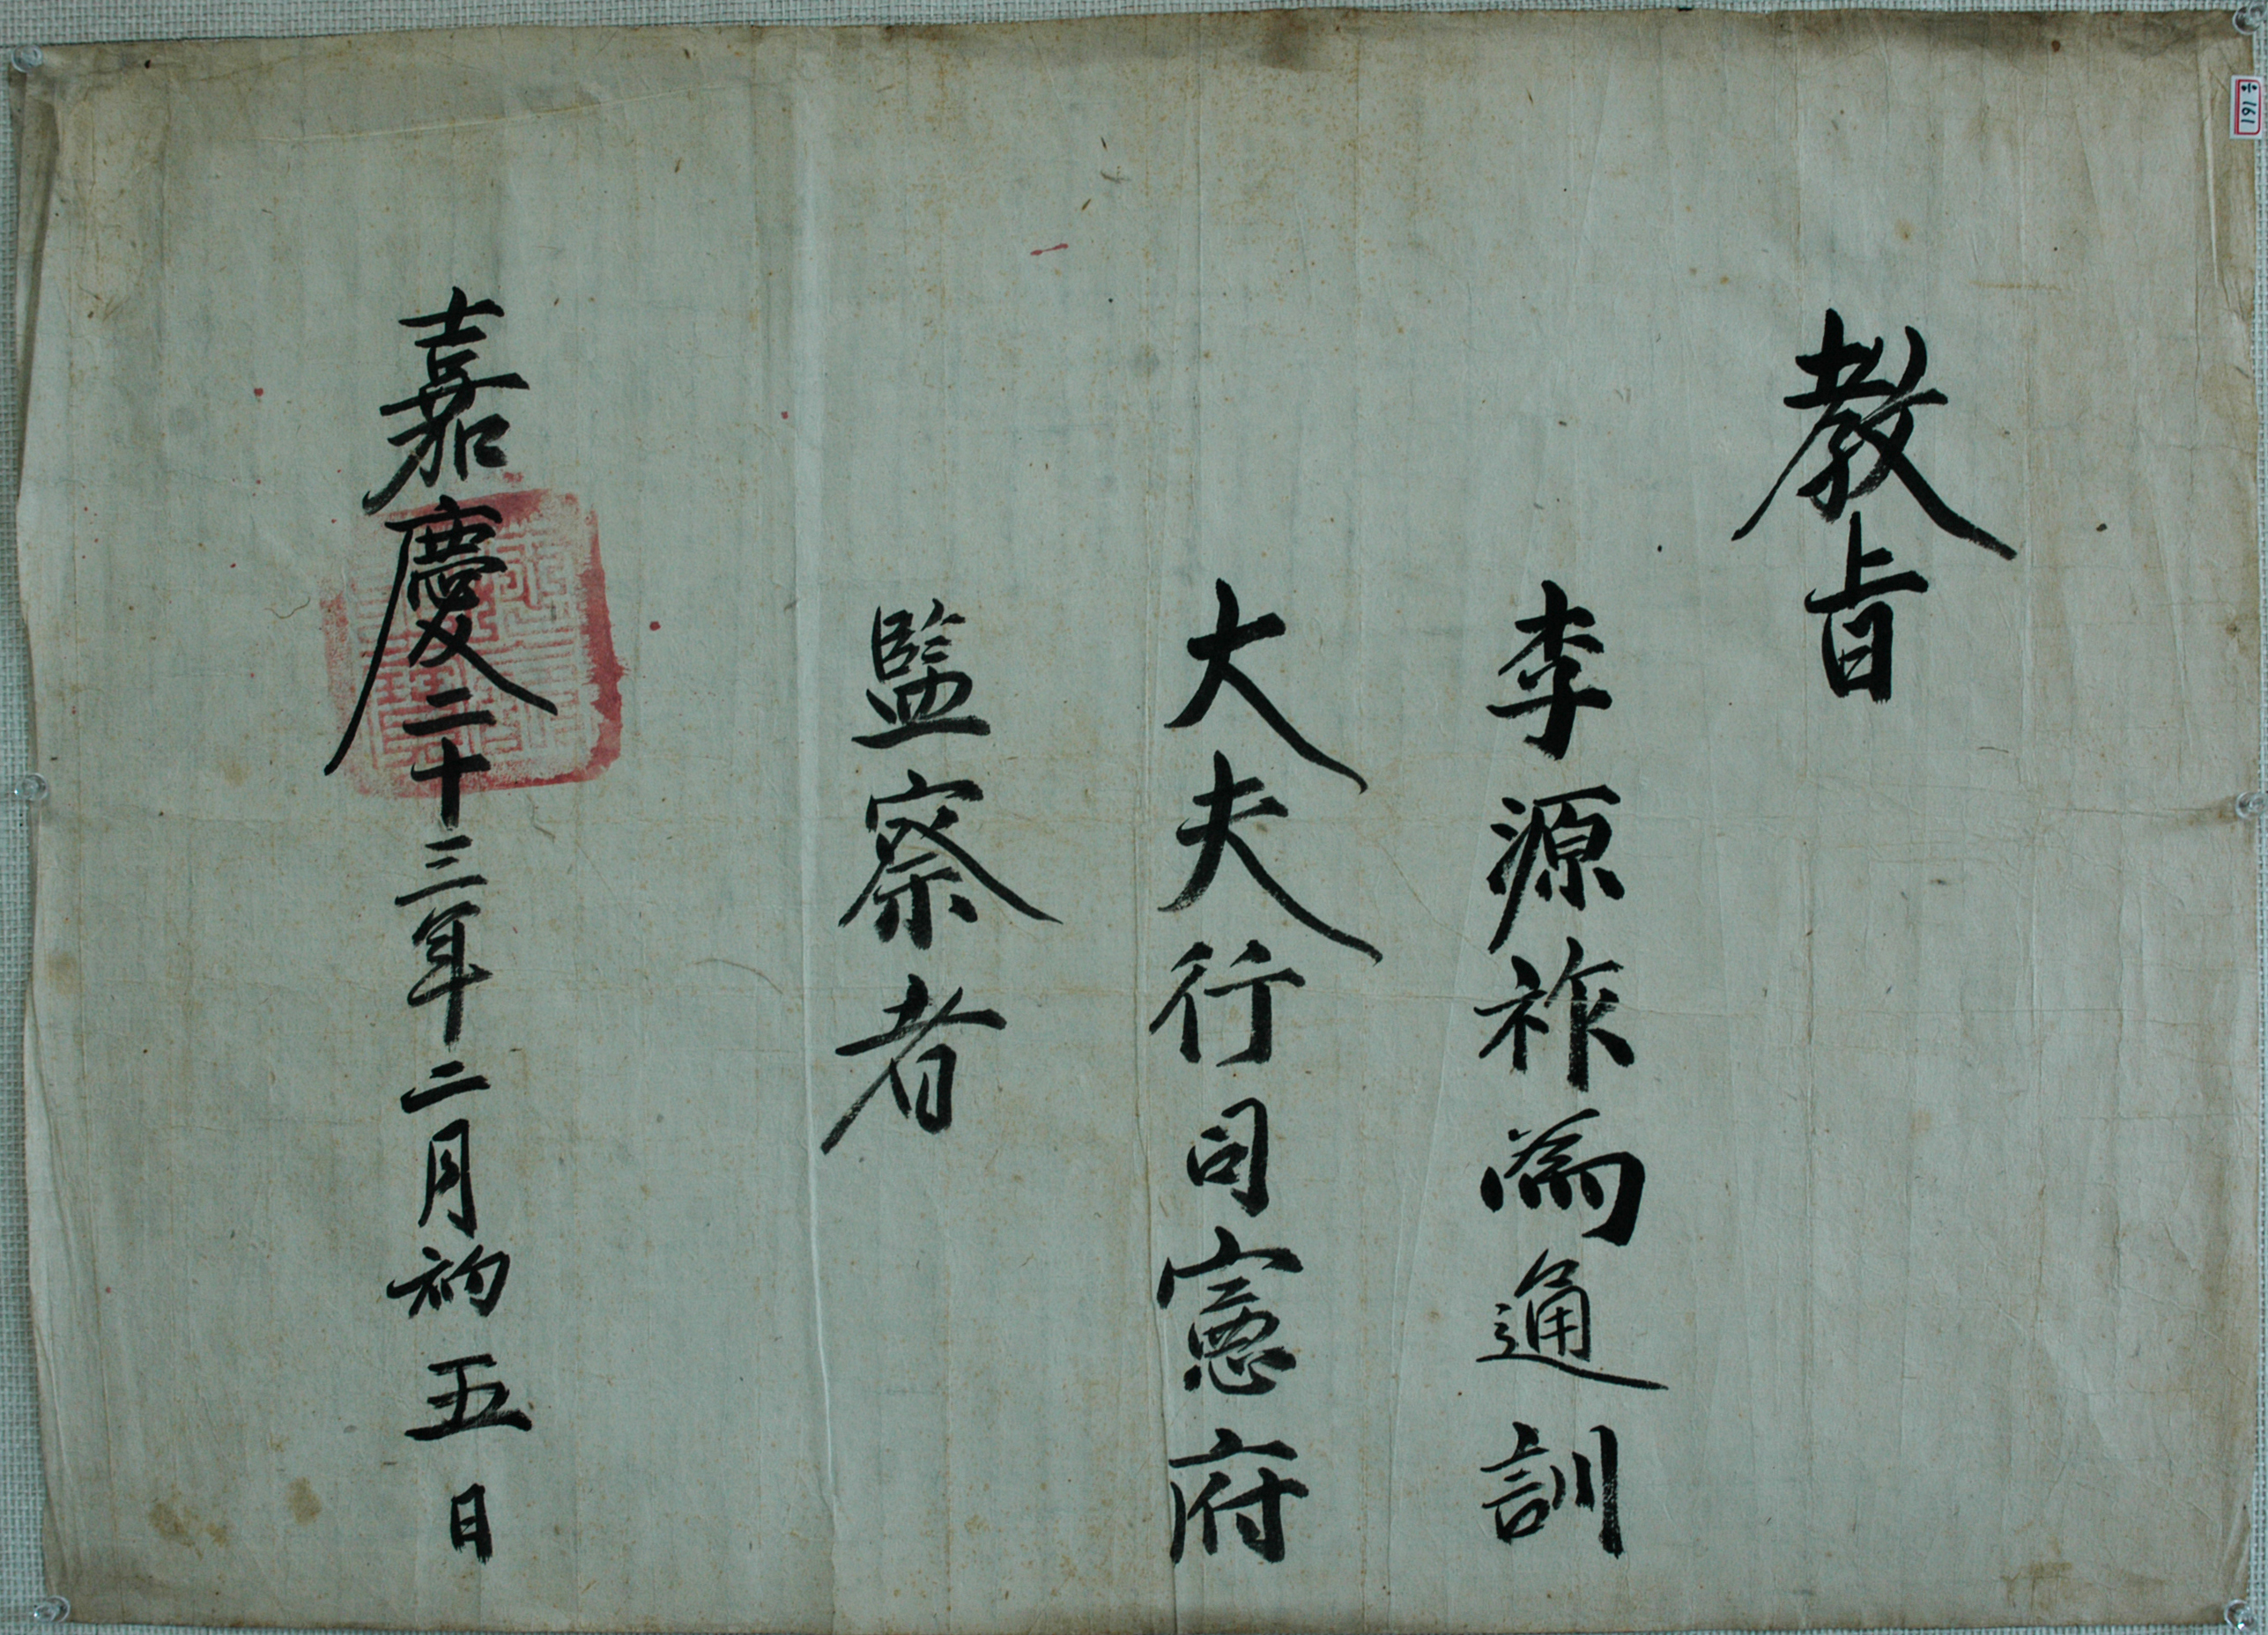 教旨
李源祚爲通訓
大夫行司憲府
監察者
嘉慶二十三年二月初五日
161